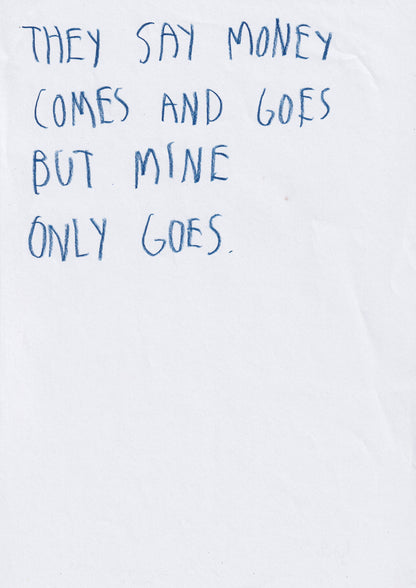 THEY SAY MONEY
COMES AND GOES
BUT MINE
ONLY GOES.